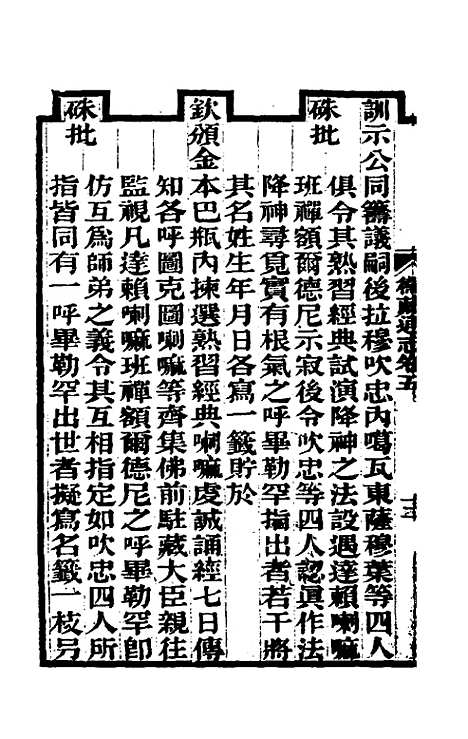 訓示公同籌議嗣後拉穆吹忠內噶瓦東薩穆葉等四人
俱令其熟習經典試演降神之法設遇達賴喇嘛
硃批
班禪額爾德尼示寂後令吹忠等四人認眞作法
降神尋覓實有根氣之呼畢勒罕指出者若干將
其名姓生年月日各寫一籤貯於
欽頒金本巴瓶內揀選熟習經典喇嘛虔誠誦經七日傳
知各呼圖克圖喇嘛等齊集佛前駐藏大臣親往
監視凡達賴喇嘛班禪額爾德尼之呼畢勒罕卽
仿互爲師弟之義令其互相指定如吹忠四人所
硃批
指皆同有一呼畢勒罕出世者擬寫名籤一枝另
衛藏通志卷五
十三